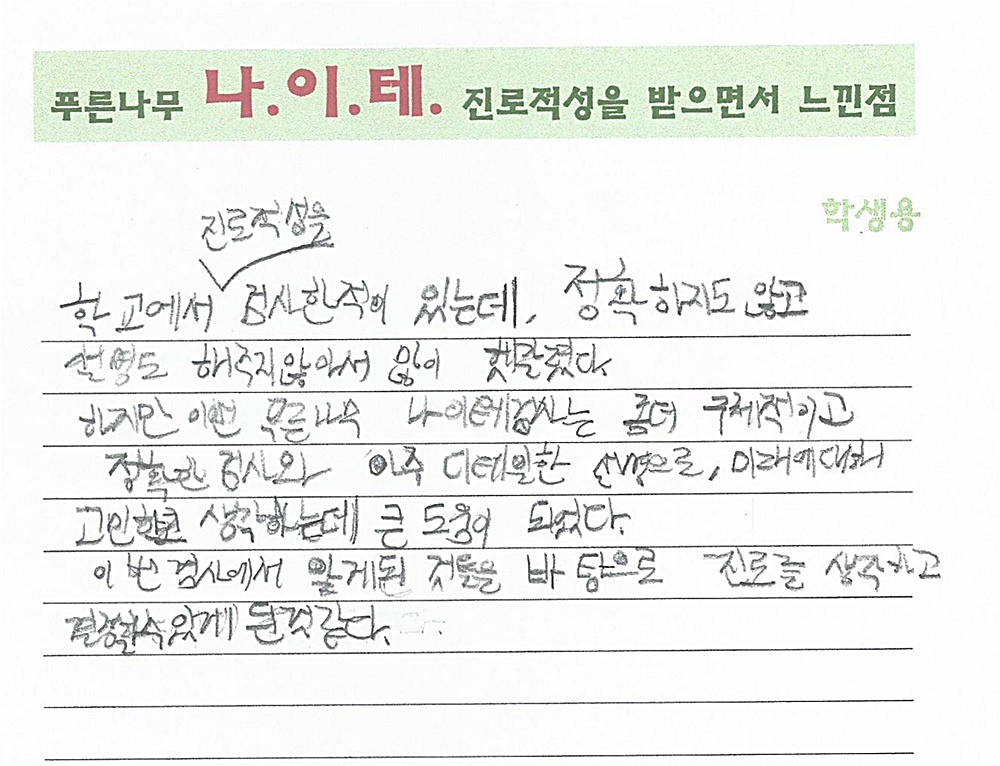 푸른나무 나.이.테. 진로적성을 받으면서 느낀점
학생용
진로적성을
학교에서 검사한적이 있는데, 정확하지도 않고
설명도 해주지않아서 많이 헷갈렸다.
하지만 이번 푸른나무 나이테검사는 좀더 구체적이고
정확한 검사와 아주 디테일한 설명으로, 미래에대해
고민하고 생각하는데 큰 도움이 되었다.
이번 검사에서 알게된 것들을 바탕으로 진로를 생각하고
결정할수있게 된것같다.